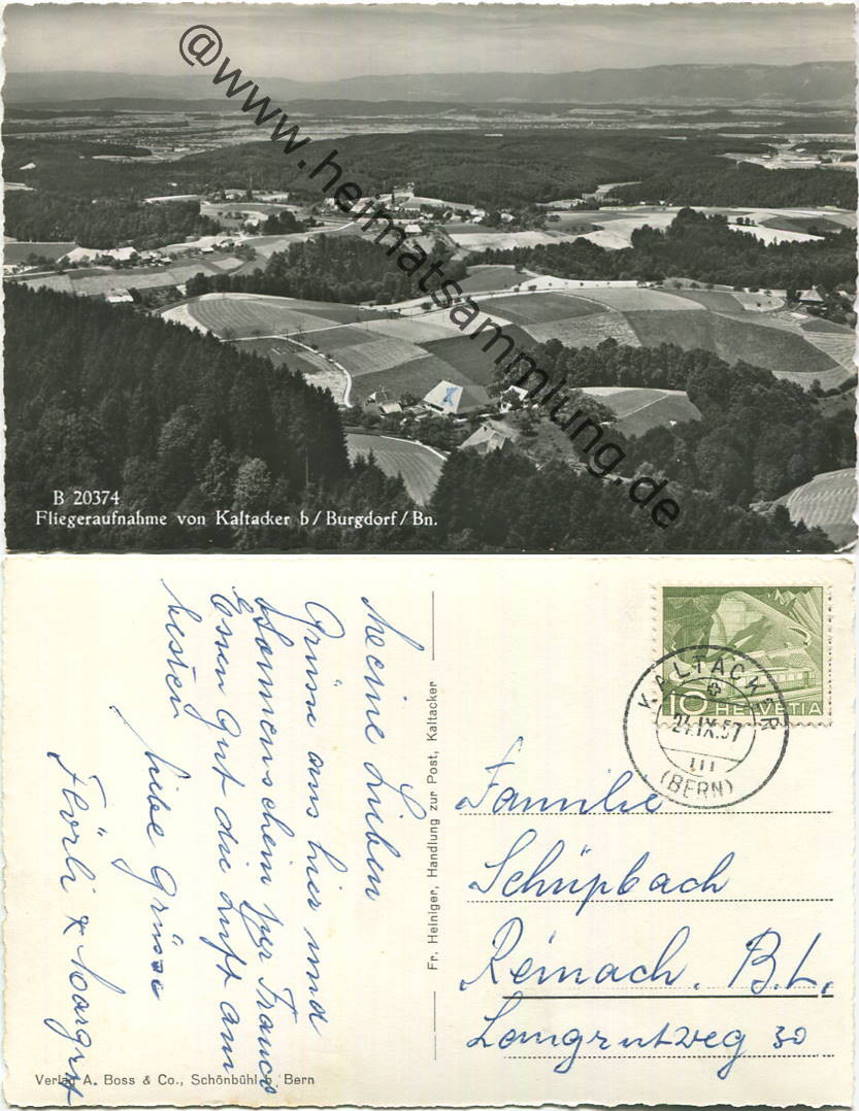 @www.heimatsammlung.de
B 20374
Fliegeraufnahme von Kaltacker b/Burgdorf/Bn.
Meine Lieben
Grüsse aus hier und
Sonnenschein für Franco
Essen gut die Luft am
besten
liebe Grüsse
Flörli & Margrit
Fr. Heiniger, Handlung zur Post, Kaltacker
KALTACKER
24.IX.57
(BERN)
10 HELVETIA
Familie
Schüpbach
Reinach. B.L.
Langrutweg 30
Verlag A. Boss & Co., Schönbühl b. Bern